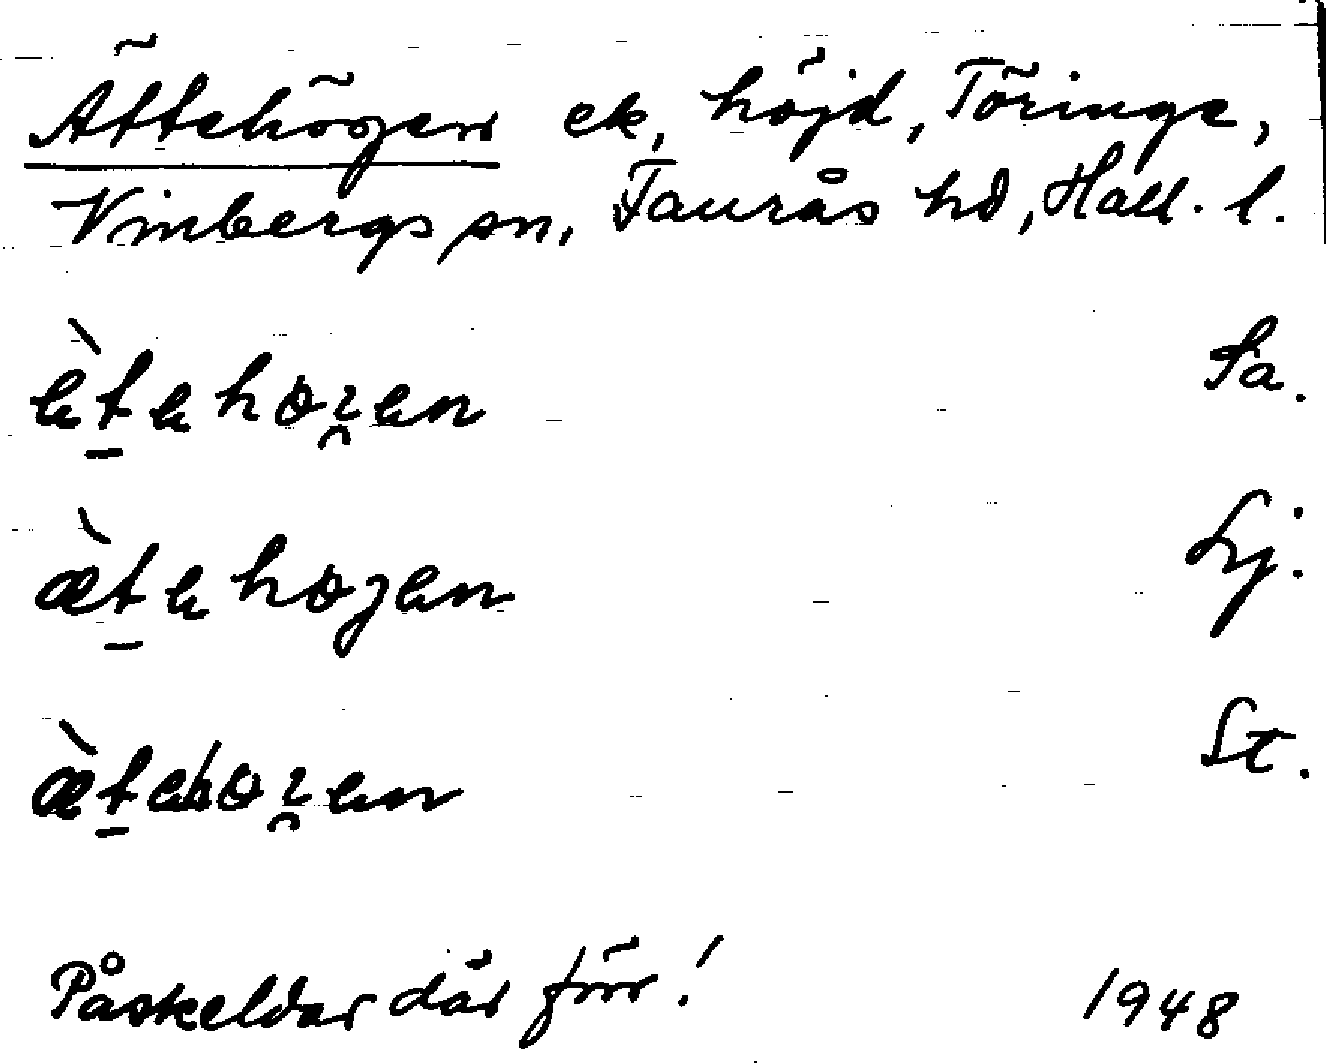 Ättehögen ek, höjd, Töringe,
Vinbergs sn, Faurås hd, Hall. l.
ètehoɀen Sa.
æ̀tehoȷen Lj.
æ̀tehoɀen St.
Påskeldar där förr! 1948